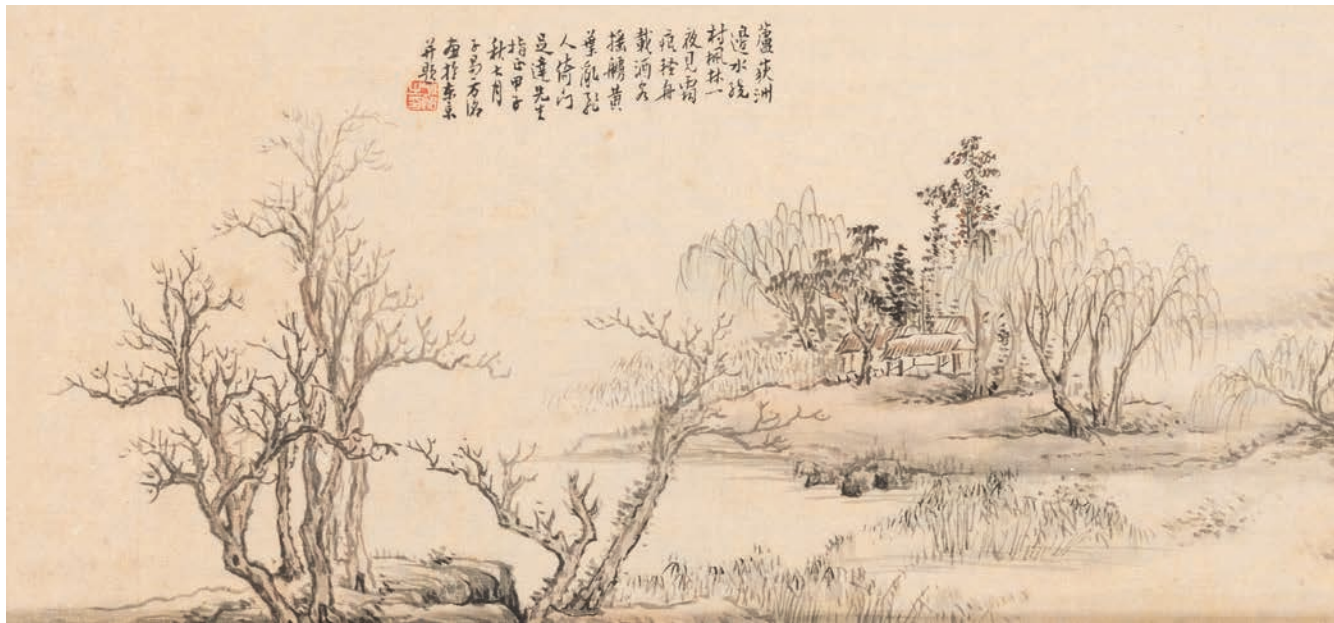 蘆荻洲
邊水繞
村楓林一
夜見霜
痕輕舟
載酒客
搖艣黃
葉亂飛
人倚门
足達先生
指正甲子
秋七月
子易方洺
画於东京
并題